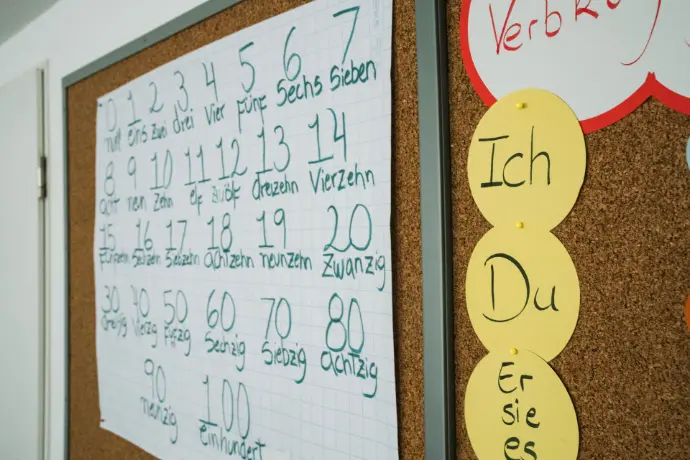 0 1 2 3 4 5 6 7
null eins zwei drei vier fünf sechs sieben
8 9 10 11 12 13 14
acht neun zehn elf zwölf dreizehn Vierzehn
15 16 17 18 19 20
fünfzehn Sechzehn Siebzehn achtzehn neunzehn Zwanzig
30 40 50 60 70 80
dreißig Vierzig fünfzig Sechzig Siebzig achtzig
90 100
neunzig einhundert
Ich
Du
Er
sie
es